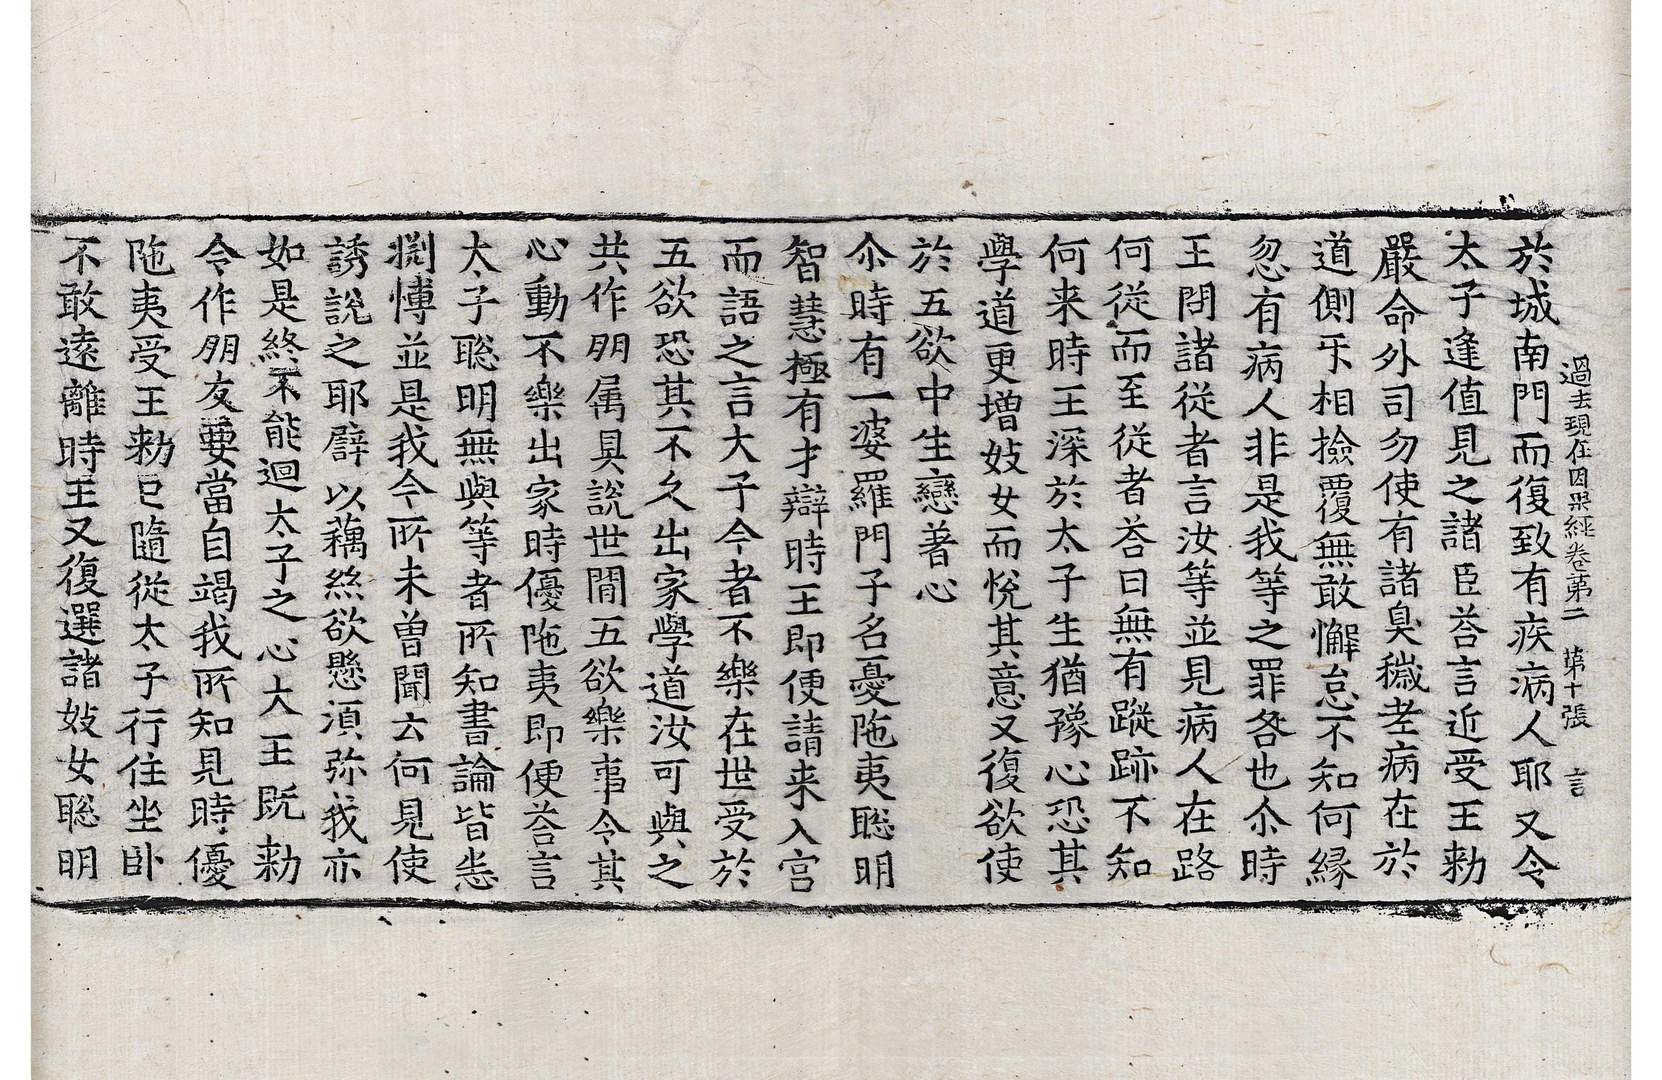 過去現在因果經卷第二 第十張 言
於城南門而復致有疾病人耶又令
太子逢值見之諸臣荅言近受王勑
嚴命外司勿使有諸臭穢老病在於
道側牙相撿覆無敢懈怠不知何緣
忽有病人非是我等之罪咎也尒時
王問諸從者言汝等並見病人在路
何從而至從者荅曰無有蹤跡不知
何来時王深於太子生猶豫心恐其
學道更增妓女而悅其意又復欲使
於五欲中生戀著心
尒時有一婆羅門子名憂陁夷聡明
智慧極有才辯時王即便請来入宫
而語之言大子今者不樂在世受於
五欲恐其不久出家學道汝可與之
共作朋属具說世間五欲樂事令其
心動不樂出家時優陁夷即便荅言
太子聡明無與等者所知書論皆悉
渊博並是我今所未曽聞云何見使
誘說之耶譬以藕絲欲懸湏弥我亦
如是終不能迴太子之心大王既勑
令作朋友要當自竭我所知見時優
陁夷受王勑已隨從太子行住坐卧
不敢遠離時王又復選諸妓女聡明